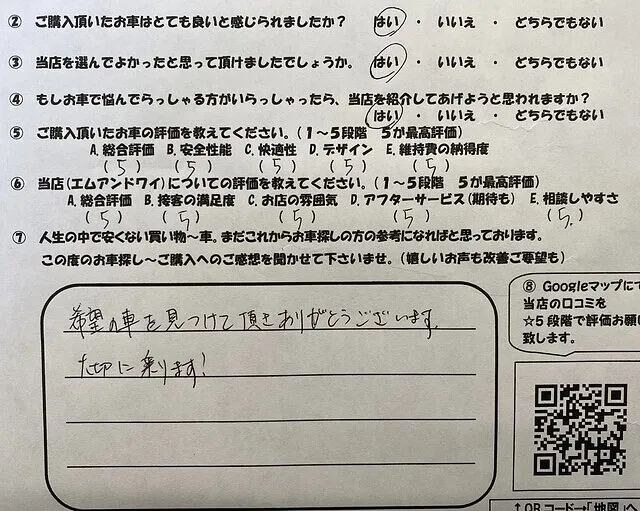 ② ご購入頂いたお車はとても良いと感じられましたか？ はい ・ いいえ ・ どちらでもない
③ 当店を選んでよかったと思って頂けましたでしょうか。 はい ・ いいえ ・ どちらでもない
④ もしお車で悩んでらっしゃる方がいらっしゃったら、当店を紹介してあげようと思われますか？
はい ・ いいえ ・ どちらでもない
⑤ ご購入頂いたお車の評価を教えてください。（1～5段階 5が最高評価）
A. 総合評価 B. 安全性能 C. 快適性 D. デザイン E. 維持費の納得度
（5） （5） （5） （5） （5）
⑥ 当店（エムアンドワイ）についての評価を教えてください。（1～5段階 5が最高評価）
A. 総合評価 B. 接客の満足度 C. お店の雰囲気 D. アフターサービス（期待も） E. 相談しやすさ
（5） （5） （5） （5） （5）
⑦ 人生の中で安くない買い物～車。まだこれからお車探しの方の参考になればと思っております。
この度のお車探し～ご購入へのご感想を聞かせて下さいませ。（嬉しいお声も改善ご要望も）
希望の車を見つけて頂きありがとうございます。
大切に乗ります！
⑧ Googleマップにて
当店の口コミを
☆5段階で評価お願い
致します。
↑QRコード→「地図」へ